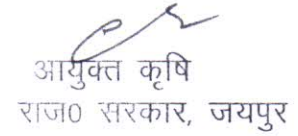 आयुक्त कृषि
राज0 सरकार, जयपुर